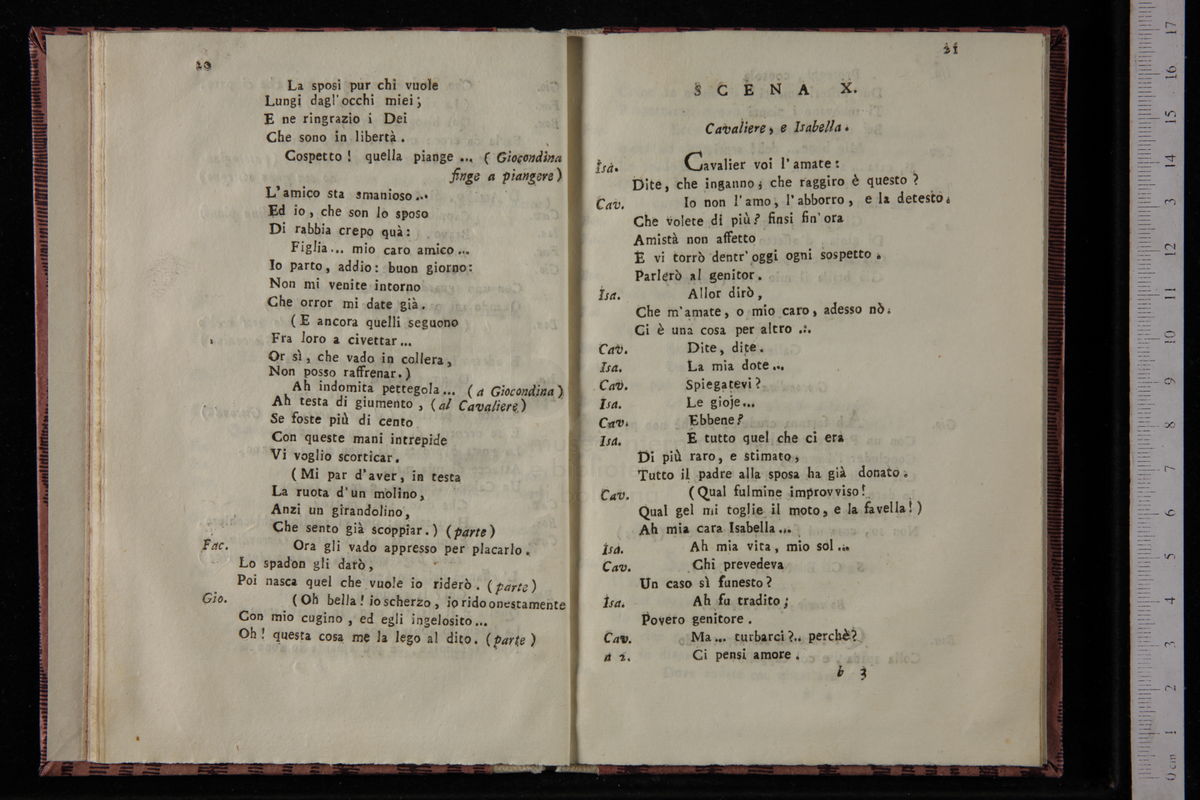 20
La sposi pur chi vuole
Lungi dagl'occhi miei;
E ne ringrazio i Dei
Che sono in libertà.
Cospetto! quella piange ... (Giocondina
finge a piangere)
L'amico sta smanioso...
Ed io, che son lo sposo
Di rabbia crepo quà:
Figlia... mio caro amico...
Io parto, addio: buon giorno:
Non mi venite intorno
Che orror mi date già.
(E ancora quelli seguono
Fra loro a civettar...
Or sì, che vado in collera,
Non posso raffrenar.)
Ah indomita pettegola... (a Giocondina)
Ah testa di giumento, (al Cavaliere)
Se foste più di cento
Con queste mani intrepide
Vi voglio scorticar.
(Mi par d'aver, in testa
La ruota d'un molino,
Anzi un girandolino,
Che sento già scoppiar.) (parte)
Fac. Ora gli vado appresso per placarlo.
Lo spadon gli darò,
Poi nasca quel che vuole io riderò. (parte)
Gio. (Oh bella! io scherzo, io rido onestamente
Con mio cugino, ed egli ingelosito...
Oh! questa cosa me la lego al dito. (parte)
21
SCENA X.
Cavaliere, e Isabella.
Isa. Cavalier voi l'amate:
Dite, che inganno, che raggiro è questo?
Cav. Io non l'amo, l'abborro, e la detesto.
Che volete di più? finsi fin'ora
Amistà non affetto
E vi torrò dentr'oggi ogni sospetto.
Parlerò al genitor.
Isa. Allor dirò,
Che m'amate, o mio caro, adesso nò.
Ci è una cosa per altro ...
Cav. Dite, dite.
Isa. La mia dote...
Cav. Spiegatevi?
Isa. Le gioje...
Cav. Ebbene?
Isa. E tutto quel che ci era
Di più raro, e stimato,
Tutto il padre alla sposa ha già donato.
Cav. (Qual fulmine improvviso!
Qual gel mi toglie il moto, e la favella!)
Ah mia cara Isabella...
Isa. Ah mia vita, mio sol...
Cav. Chi prevedeva
Un caso sì funesto?
Isa. Ah fu tradito;
Povero genitore.
Cav. Ma... turbarci?.. perchè?
a 2. Ci pensi amore.
b 3